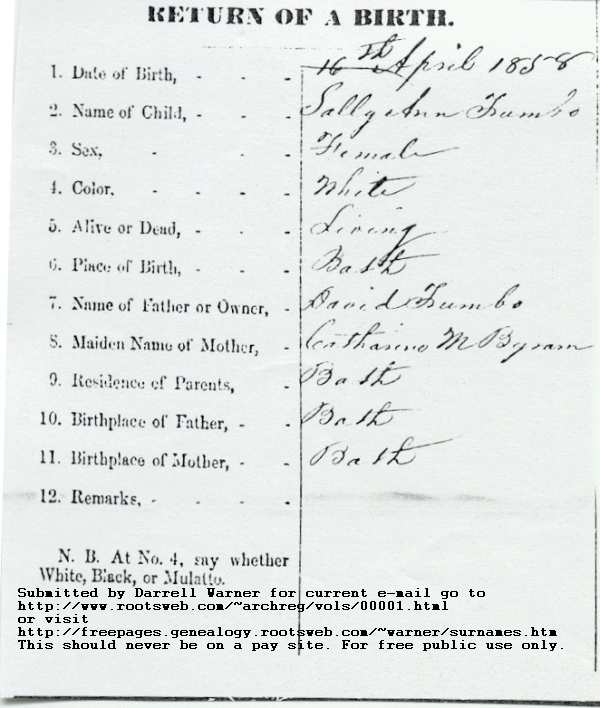 RETURN OF A BIRTH.
1. Date of Birth, - - - 16th April 1858
2. Name of Child, - - - Sally Ann Trumbo
3. Sex, - - - - Female
4. Color, - - - - White
5. Alive or Dead, - - - Living
6. Place of Birth, - - - Bath
7. Name of Father or Owner, - David Trumbo
8. Maiden Name of Mother, - Catharine M Byram
9. Residence of Parents, - Bath
10. Birthplace of Father, - - Bath
11. Birthplace of Mother, - - Bath
12. Remarks, - - - -
N. B. At No. 4, say whether
White, Black, or Mulatto.
Submitted by Darrell Warner for current e-mail go to
http://www.rootsweb.com/~archreg/vols/00001.html
or visit
http://freepages.genealogy.rootsweb.com/~warner/surnames.htm
This should never be on a pay site. For free public use only.